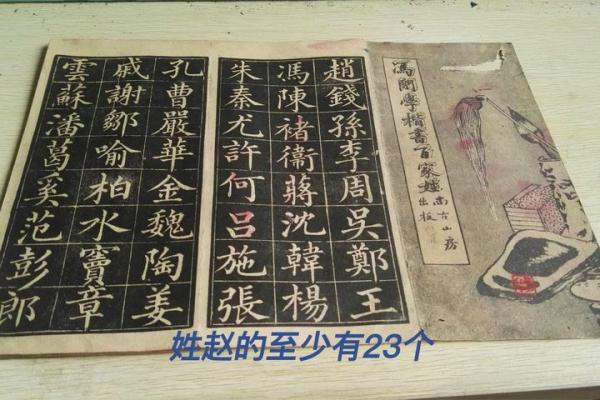 馮學楷書百家姓
尚古山房
出版
趙錢孫李周吳鄭王
馮陳褚衞蔣沈韓楊
朱秦尤許何呂施張
孔曹嚴華金魏陶姜
戚謝鄒喻柏水竇章
雲蘇潘葛奚范彭郎
姓赵的至少有23个